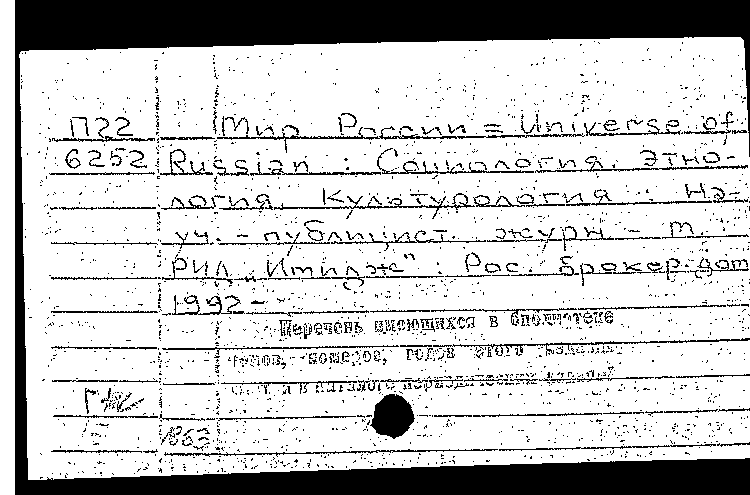 П22 Мир России = Universe of
6252 Russian : Социология. Этно-
логия. Культурология : На-
уч. - публицист. журн - М.
РИД „Имидж" : Рос. брокер. дом
1992 -
Перечень имеющихся в библиотеке
томов, номеров, годов этого издания
в каталоге периодических изданий
1863